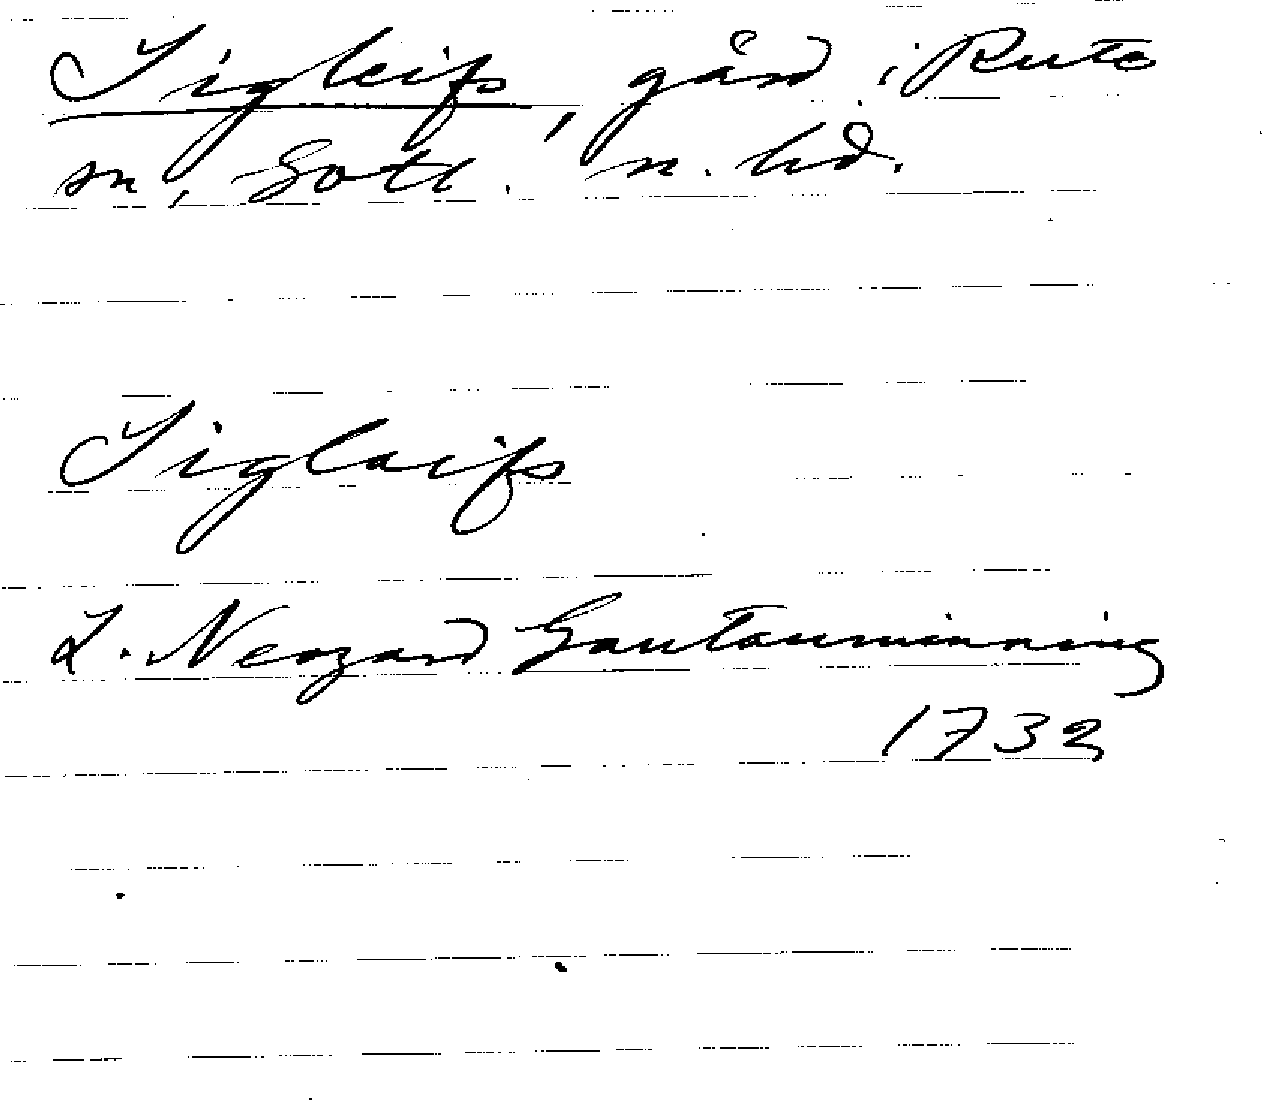 Sigleifs, gård i Rute
sn, Gotl. n. hd.
Siglaifs
L. Neogard Gautauminning
1732